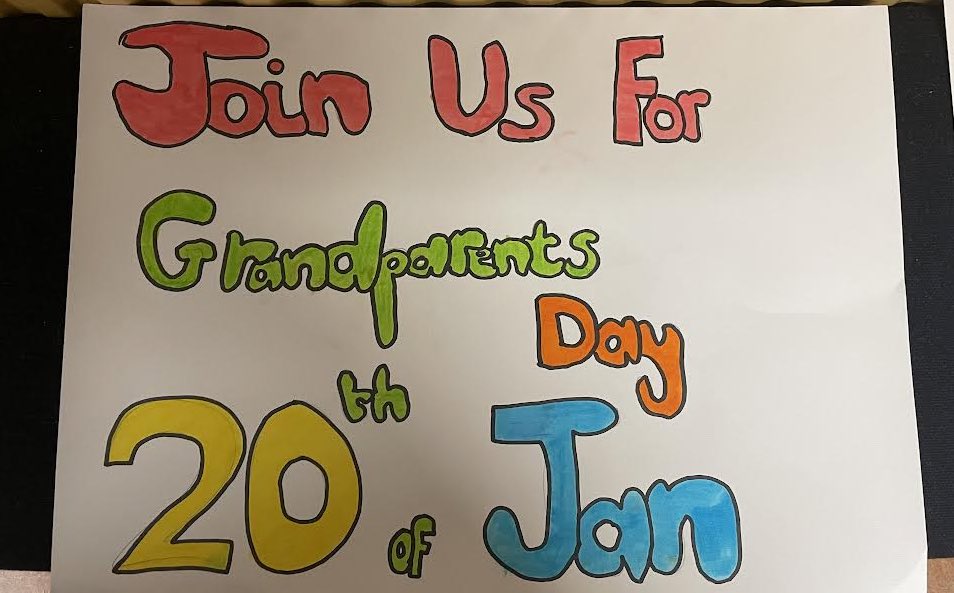 Join Us For
Grandparents
Day
20th of Jan